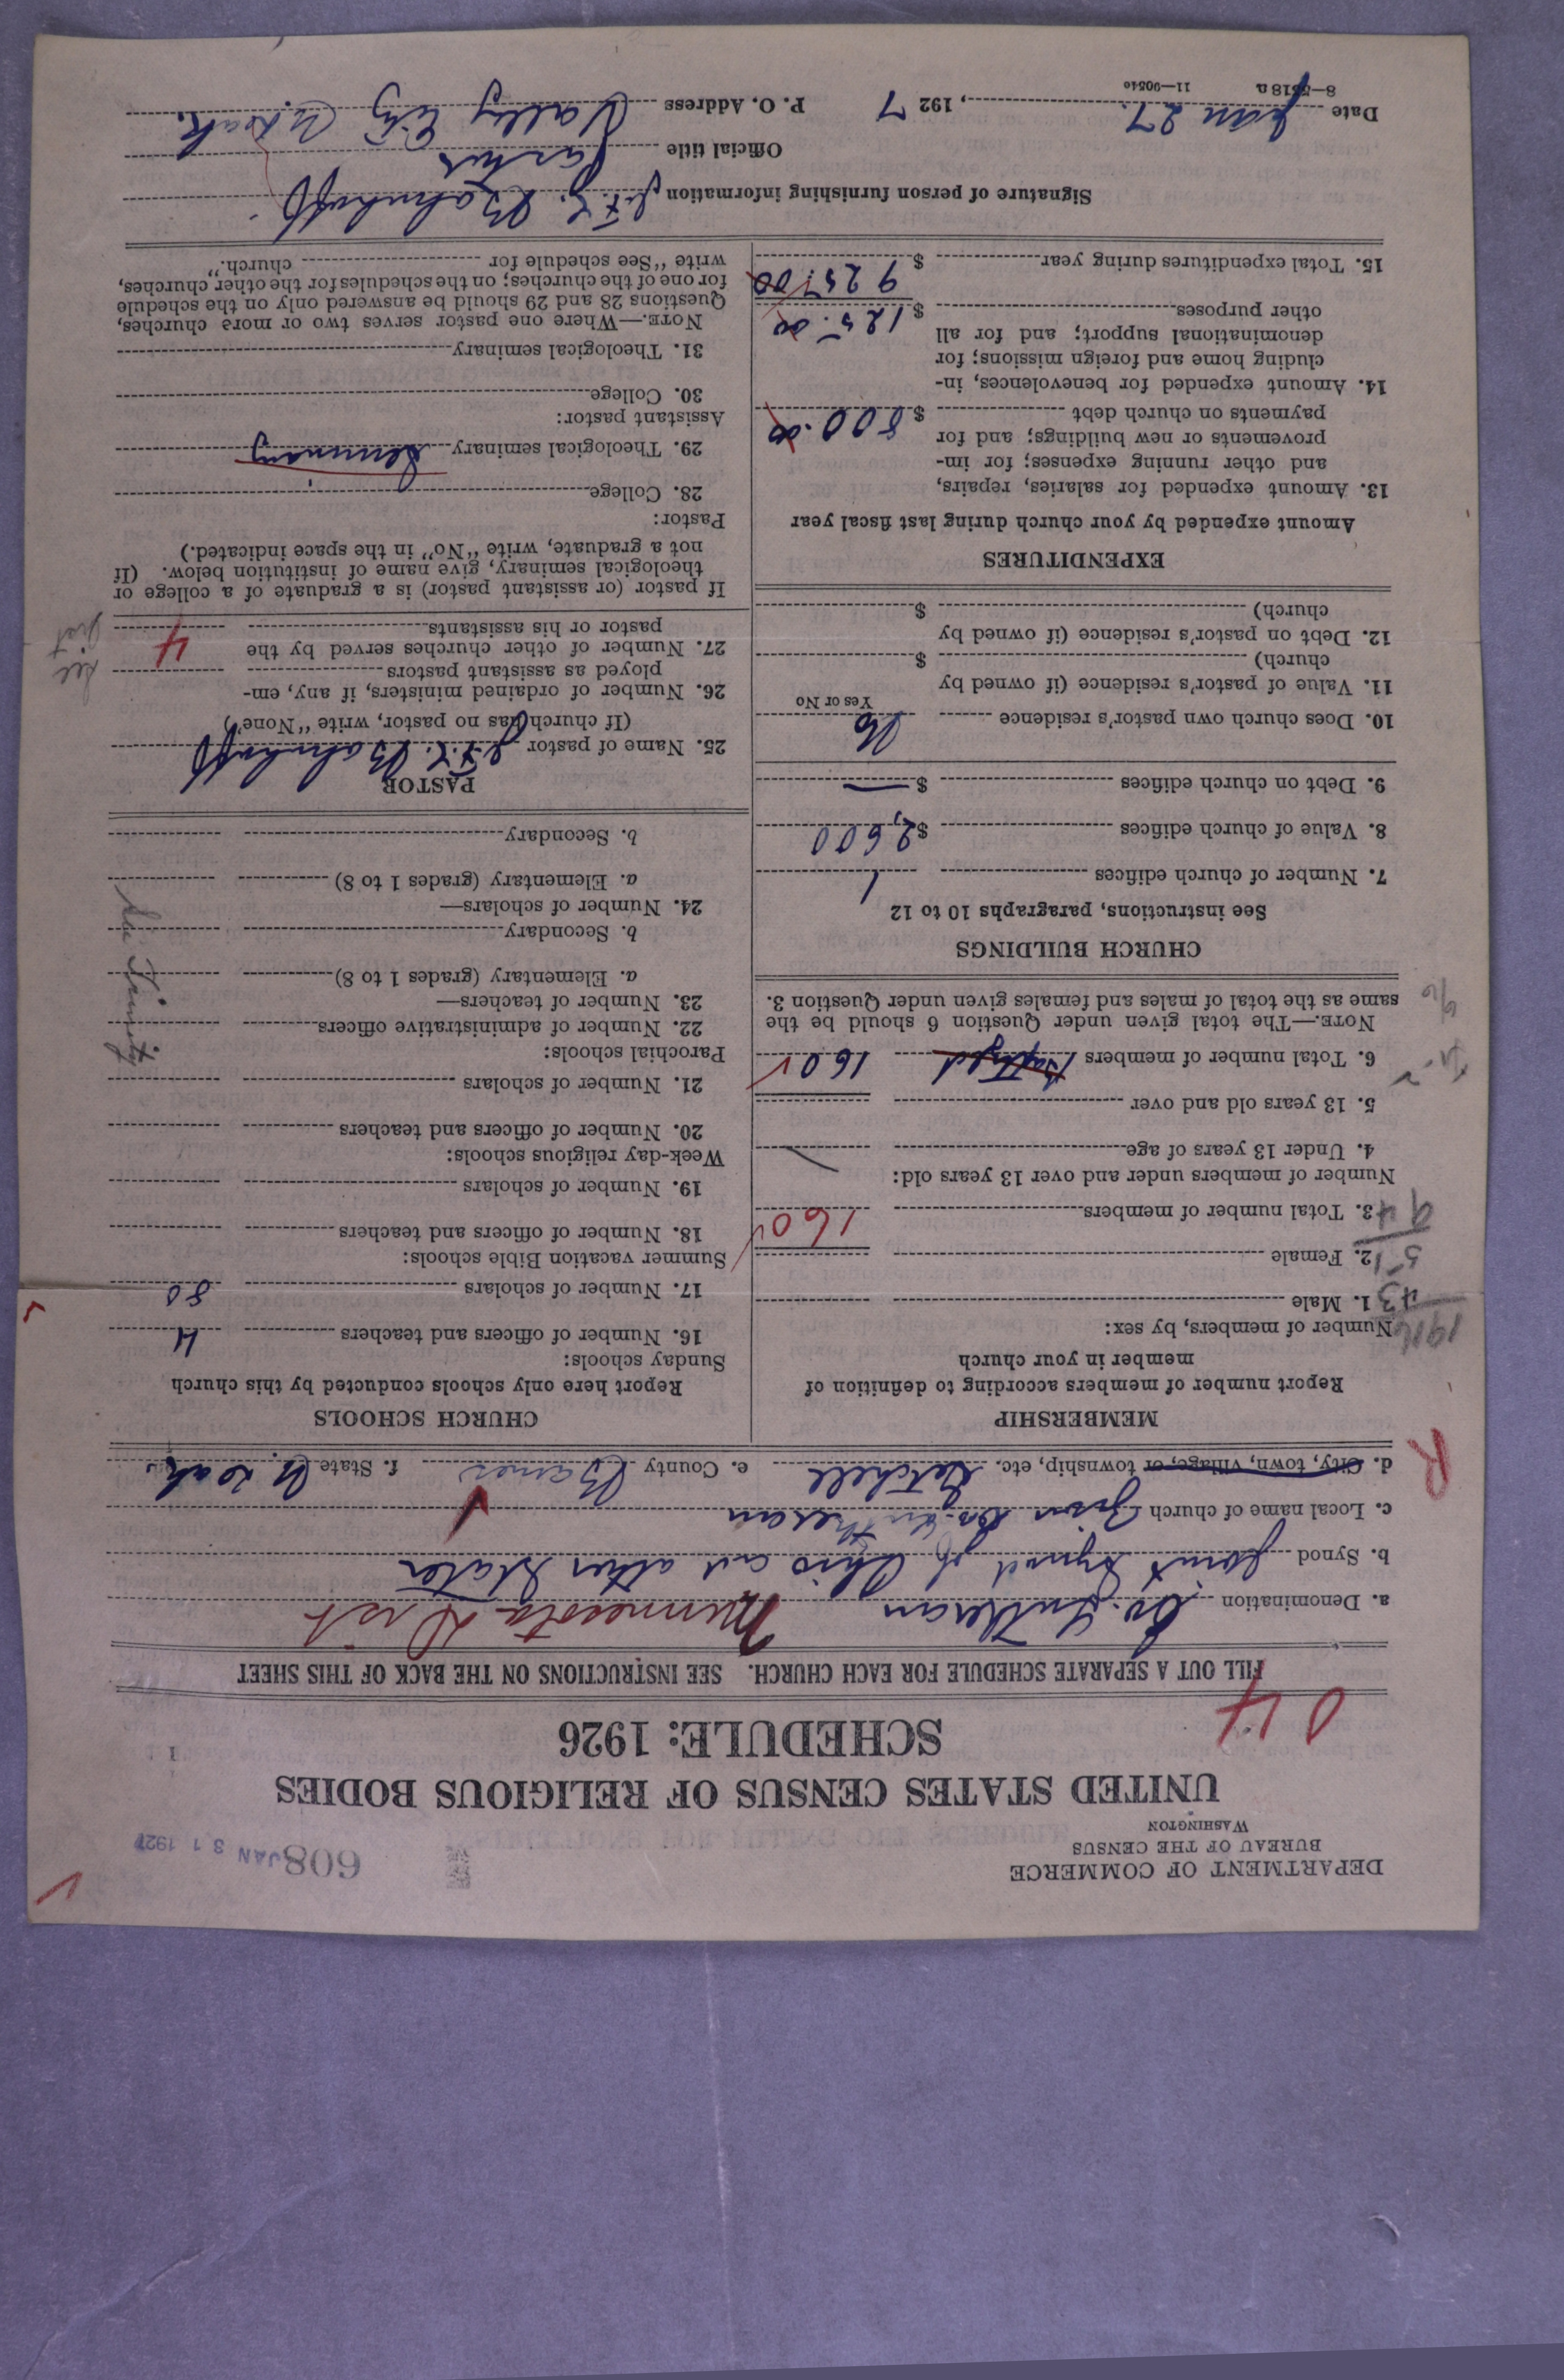 DEPARTMENT OF COMMERCE
BUREAU OF THE CENSUS
WASHINGTON
608 JAN 31 1927
UNITED STATES CENSUS OF RELIGIOUS BODIES
SCHEDULE: 1926
1
04
FILL OUT A SEPARATE SCHEDULE FOR EACH CHURCH. SEE INSTRUCTIONS ON THE BACK OF THIS SHEET
a. Denomination Ev. Lutheran Minnesota Dist
b. Synod Joint Synod of Ohio and other States
c. Local name of church Zion Ev. Lutheran
d. City, town, village, or township, etc. Getchell e. County Barnes f. State N. Dak.
R
MEMBERSHIP
Report number of members according to definition of
member in your church
Number of members, by sex:
1916
1. Male
43
2. Female
51
3. Total number of members 160
94
Number of members under and over 13 years old:
4. Under 13 years of age
5. 13 years old and over
6. Total number of members baptized 160
NOTE.—The total given under Question 6 should be the
same as the total of males and females given under Question 3.
CHURCH BUILDINGS
See instructions, paragraphs 10 to 12
7. Number of church edifices 1
8. Value of church edifices $2,600
9. Debt on church edifices $ —
10. Does church own pastor's residence No
Yes or No
11. Value of pastor's residence (if owned by
church) $
12. Debt on pastor's residence (if owned by
church) $
EXPENDITURES
Amount expended by your church during last fiscal year
13. Amount expended for salaries, repairs,
and other running expenses; for im-
provements or new buildings; and for
payments on church debt $ 800.00
14. Amount expended for benevolences, in-
cluding home and foreign missions; for
denominational support; and for all
other purposes $ 125.00
15. Total expenditures during year $ 925.00
CHURCH SCHOOLS
Report here only schools conducted by this church
Sunday schools:
16. Number of officers and teachers 4
17. Number of scholars 80
Summer vacation Bible schools:
18. Number of officers and teachers
19. Number of scholars
Week-day religious schools:
20. Number of officers and teachers
21. Number of scholars
Parochial schools:
22. Number of administrative officers
23. Number of teachers—
a. Elementary (grades 1 to 8)
b. Secondary
24. Number of scholars—
a. Elementary (grades 1 to 8)
b. Secondary
See Trinity
PASTOR
25. Name of pastor J.F.G. Bohnhoff
(If church has no pastor, write "None")
26. Number of ordained ministers, if any, em-
ployed as assistant pastors
27. Number of other churches served by the
pastor or his assistants 4
See
If pastor (or assistant pastor) is a graduate of a college or
theological seminary, give name of institution below. (If
not a graduate, write "No" in the space indicated.)
Pastor:
28. College
29. Theological seminary Seminary
Assistant pastor:
30. College
31. Theological seminary
NOTE.—Where one pastor serves two or more churches,
Questions 28 and 29 should be answered only on the schedule
for one of the churches; on the schedules for the other churches,
write "See schedule for church."
Signature of person furnishing information J.F.G. Bohnhoff
Official title Pastor
Date Jan 27., 1927 P. O. Address Vally City N. Dak.
8—5518a 11—9054o